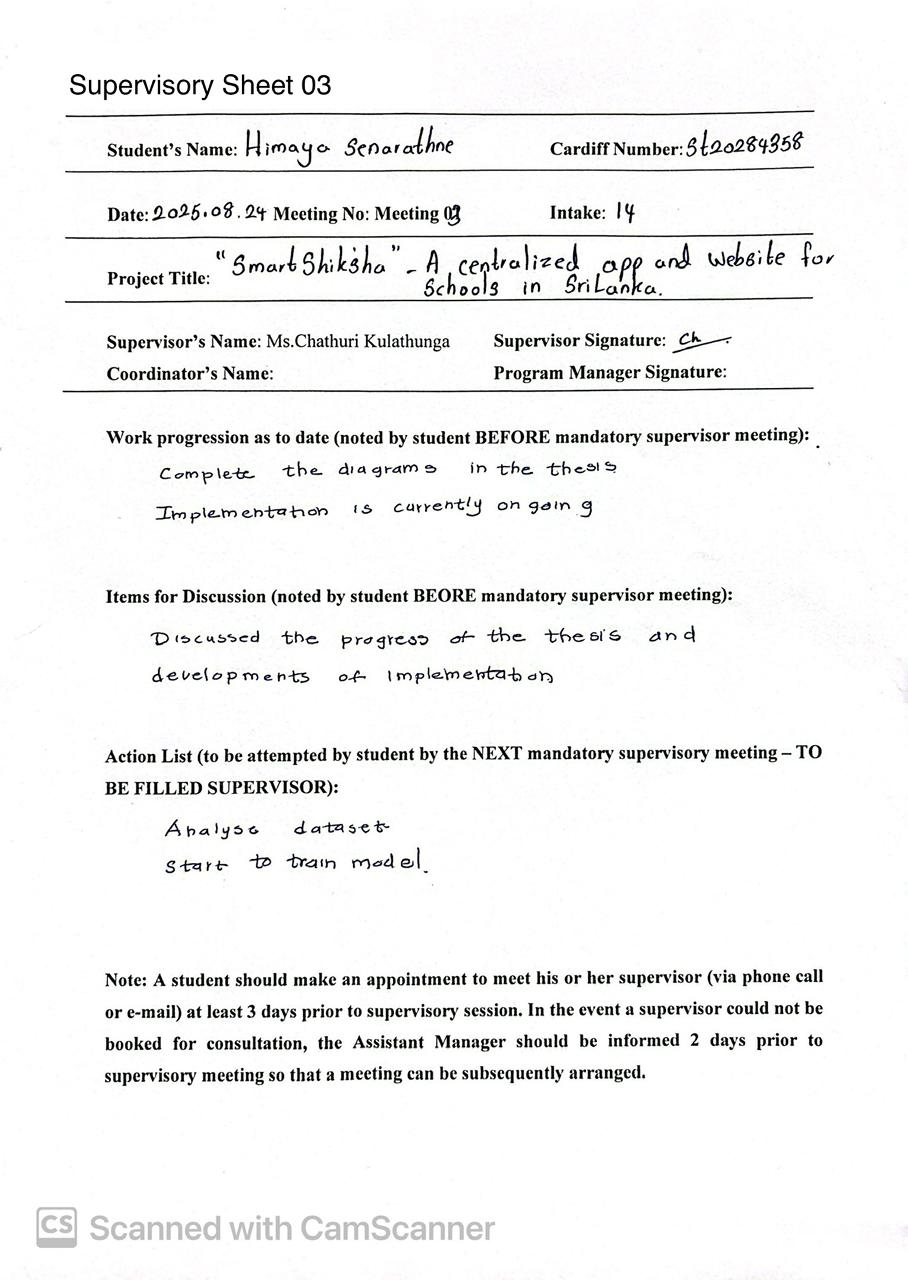 Supervisory Sheet 03
Student's Name: Himaya Senarathne Cardiff Number: St20284358
Date: 2025.08.24 Meeting No: Meeting 03 Intake: 14
Project Title: "SmartShiksha" - A centralized app and website for
Schools in SriLanka.
Supervisor's Name: Ms.Chathuri Kulathunga Supervisor Signature: Ch
Coordinator's Name: Program Manager Signature:
Work progression as to date (noted by student BEFORE mandatory supervisor meeting):
Complete the diagrams in the thesis
Implementation is currently on going
Items for Discussion (noted by student BEORE mandatory supervisor meeting):
Discussed the progress of the thesis and
developments of implementation
Action List (to be attempted by student by the NEXT mandatory supervisory meeting – TO
BE FILLED SUPERVISOR):
Analyse dataset
Start to train model.
Note: A student should make an appointment to meet his or her supervisor (via phone call
or e-mail) at least 3 days prior to supervisory session. In the event a supervisor could not be
booked for consultation, the Assistant Manager should be informed 2 days prior to
supervisory meeting so that a meeting can be subsequently arranged.
CS Scanned with CamScanner